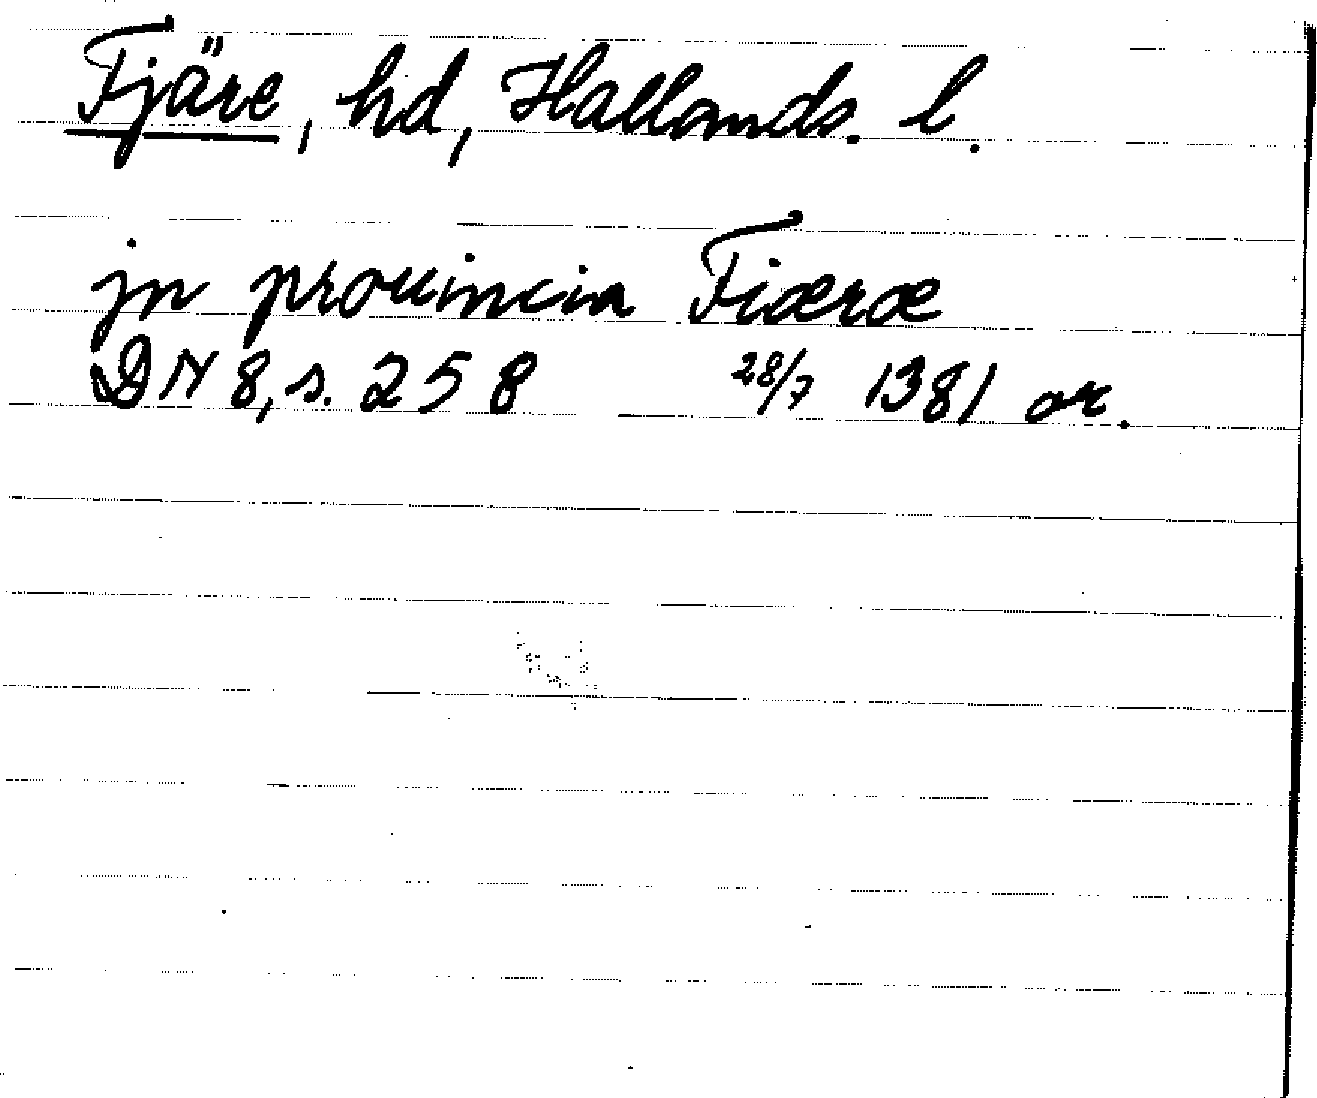 Fjäre, hd, Hallands. l.
jn prouincia Fiæræ
DN 8, s. 258 28/7 1381 or.